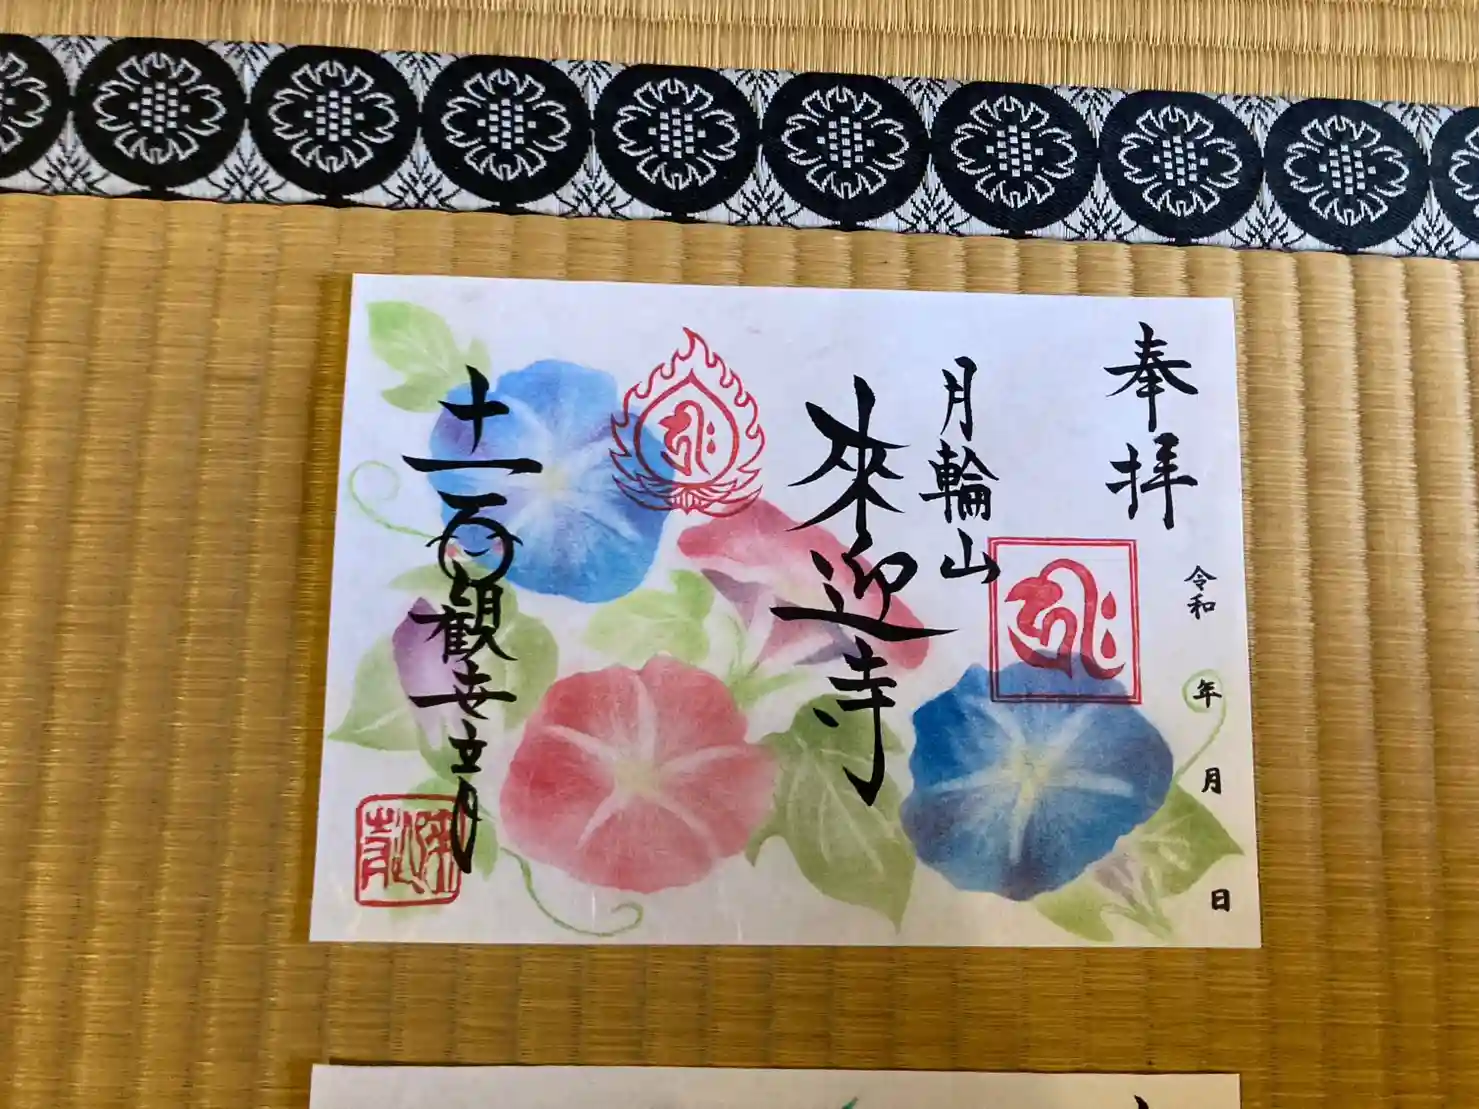 奉拝
令和 年 月 日
月輪山
來迎寺
十一面観世音